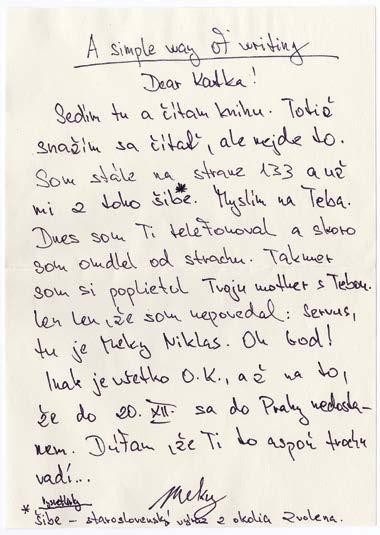 A simple way of writing
Dear Katka!
Sedím tu a čítam knihu. Totiž
snažím sa čítať, ale nejde to.
Som stále na strane 133 a už
mi z toho šibe*. Myslím na Teba.
Dnes som Ti telefonoval a skoro
som omdlel od strachu. Takmer
som si poplietol Tvoju mother s Tebou.
Len len, že som nepovedal: Servus,
tu je Meky Niklas. Oh God!
Inak je všetko O.K., až na to,
že do 20. XII. sa do Prahy nedosta-
nem. Dúfam, že Ti to aspoň trochu
vadí...
Meky
* šibe - staroslovenský výraz z okolia Zvolena.